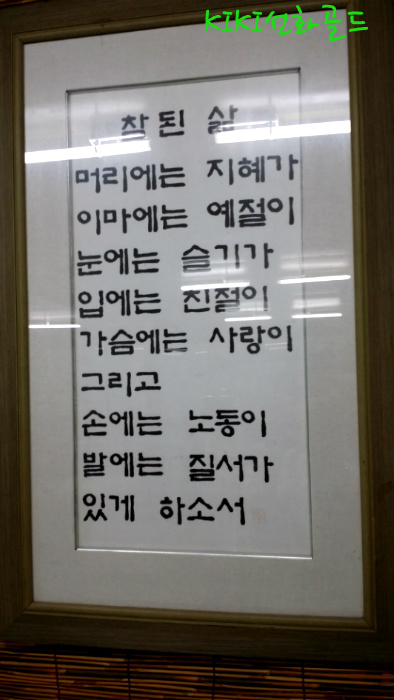 KIKI선화골드
참된 삶
머리에는 지혜가
이마에는 예절이
눈에는 슬기가
입에는 친절이
가슴에는 사랑이
그리고
손에는 노동이
발에는 질서가
있게 하소서